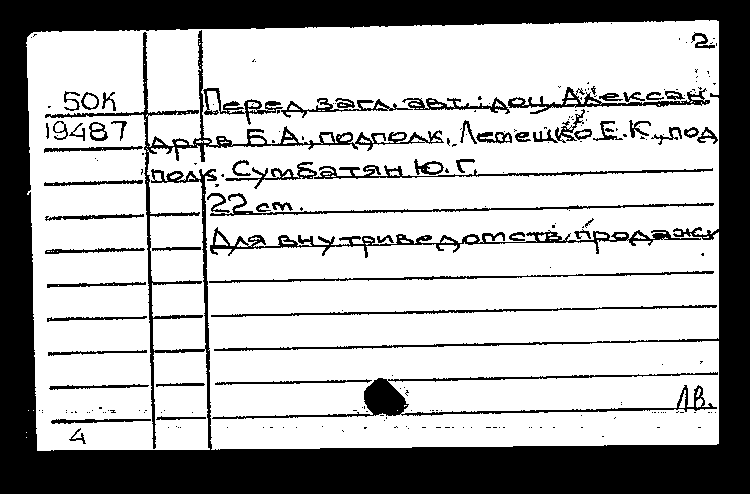 2
50К Перед загл. авт.: доц. Алексан-
19487 дров Б.А., подполк. Лемешко Е.К., под
полк. Сумбатян Ю.Г.
22 cm.
Для внутриведомств. продажи
ЛВ.
4